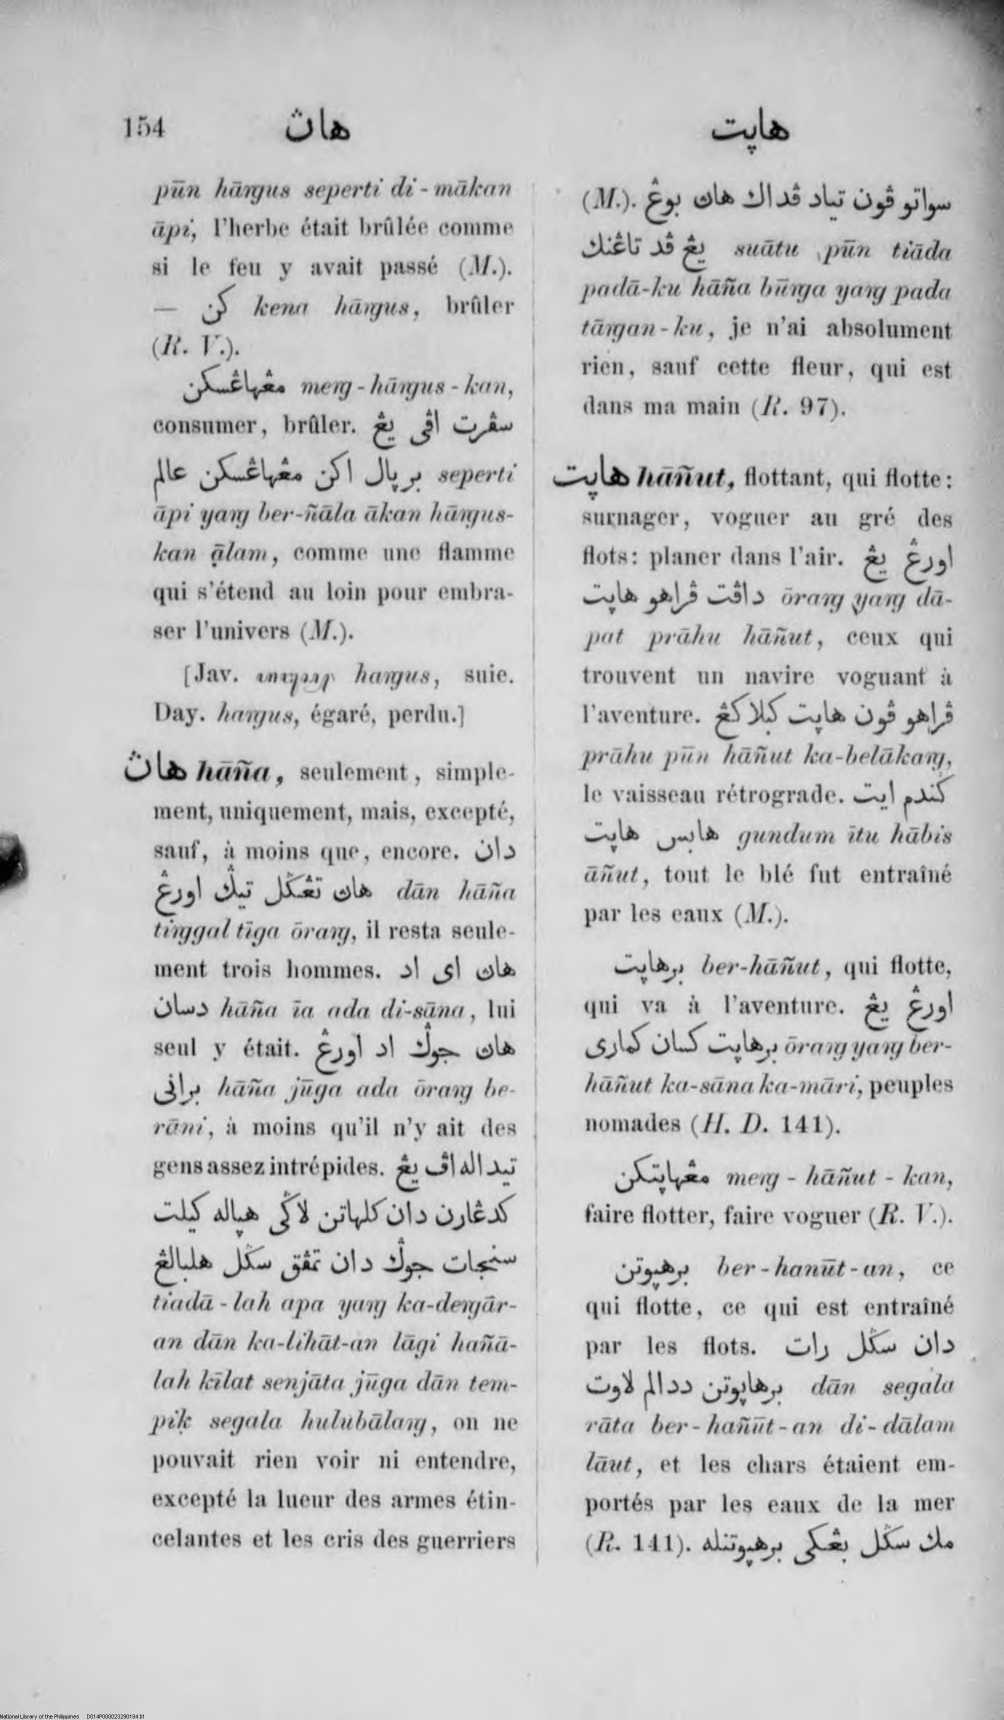 154 هاڽ هاڽت
pūn hāngus seperti di-mākan
āpi, l’herbe était brûlée comme
si le feu y avait passé (M.).
— كن kena hāngus, brûler
(R. V.).
مڠهاڠسكن meng-hāngus-kan,
consumer, brûler. سڤرت اڤي يڠ
برڽال اكن مڠهاڠسكن عالم seperti
āpi yang ber-ñāla ākan hāngus-
kan ālam, comme une flamme
qui s’étend au loin pour embra-
ser l’univers (M.).
[Jav. hangus, suie.
Day. hangus, égaré, perdu.]
هاڽ hāña, seulement, simple-
ment, uniquement, mais, excepté,
sauf, à moins que, encore. دان
هاڽ تڠݢل تيݢ اورڠ dān hāña
tinggal tīga ōrang, il resta seule-
ment trois hommes. هاڽ اي اد
دسان hāña īa ada di-sāna, lui
seul y était. هاڽ جوݢ اد اورڠ
براني hāña jūga ada ōrang be-
rāni, à moins qu’il n’y ait des
gens assez intrépides. تيد اله اڤ يڠ
كدڠارن دان كلهاتن لاݢي هڽاله كيلت
سنجات جوݢ دان تمڤق سݢل هلبالڠ
tiadā-lah apa yang ka-dengār-
an dān ka-lihāt-an lāgi hañā-
lah kīlat senjāta jūga dān tem-
pik segala hulubālang, on ne
pouvait rien voir ni entendre,
excepté la lueur des armes étin-
celantes et les cris des guerriers
(M.). سواتو ڤون تياد ڤداك هاڽ بوڠ
يڠ ڤد تاڠنك suātu pūn tiāda
padā-ku hāña būnga yang pada
tāngan-ku, je n’ai absolument
rien, sauf cette fleur, qui est
dans ma main (R. 97).
هاڽت hāñut, flottant, qui flotte:
surnager, voguer au gré des
flots: planer dans l’air. اورڠ يڠ
داڤت ڤراهو هاڽت ōrang yang dā-
pat prāhu hāñut, ceux qui
trouvent un navire voguant à
l’aventure. ڤراهو ڤون هاڽت كبلاكڠ
prāhu pūn hāñut ka-belākang,
le vaisseau rétrograde. ݢندم ايت
هابس هاڽت gundum ītu hābis
āñut, tout le blé fut entraîné
par les eaux (M.).
برهاڽت ber-hāñut, qui flotte,
qui va à l’aventure. اورڠ يڠ
برهاڽت كسان كماري ōrang yang ber-
hāñut ka-sāna ka-māri, peuples
nomades (H. D. 141).
مڠهاڽتكن meng-hāñut-kan,
faire flotter, faire voguer (R. V.).
برهڽوتن ber-hanūt-an, ce
qui flotte, ce qui est entraîné
par les flots. دان سݢل رات
برهاڽوتن ددالم لاوت dān segala
rāta ber-hañūt-an di-dālam
lāut, et les chars étaient em-
portés par les eaux de la mer
(R. 141). مك سݢل بڠكي برهڽوتنله
National Library of the Philippines